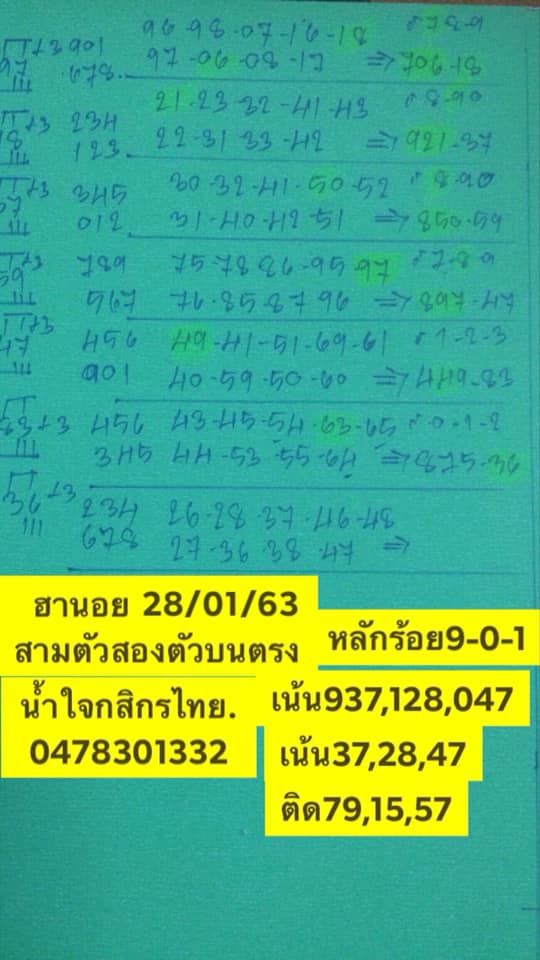 96-98-07-16-18 ร 789
+3 901
97 678. 97-06-08-17 ⇒ 706-18
21-23-32-41-43 ร 8-90
+3 234
18 123. 22-31-33-42 ⇒ 921-37
+3 345 30-32-41-50-52 ร 8-90
37 012. 31-40-42-51 ⇒ 850-59
+3 789 75-78 86-95 97 ร 7-8-9
59 567 76-85-87 96 ⇒ 897-47
+3 456 49-41-51-69-61 ร 1-2-3
47 901 40-59-50-60 ⇒ 449-83
83+3 456 43-45-54-63-65 ร 0-1-2
345 44-53-55-64 ⇒ 875-36
36+3 234 26-28-37-46-48
678 27-36-38-47 ⇒
ฮานอย 28/01/63
สามตัวสองตัวบนตรง
หลักร้อย9-0-1
น้ำใจกสิกรไทย.
0478301332
เน้น937,128,047
เน้น37,28,47
ติด79,15,57